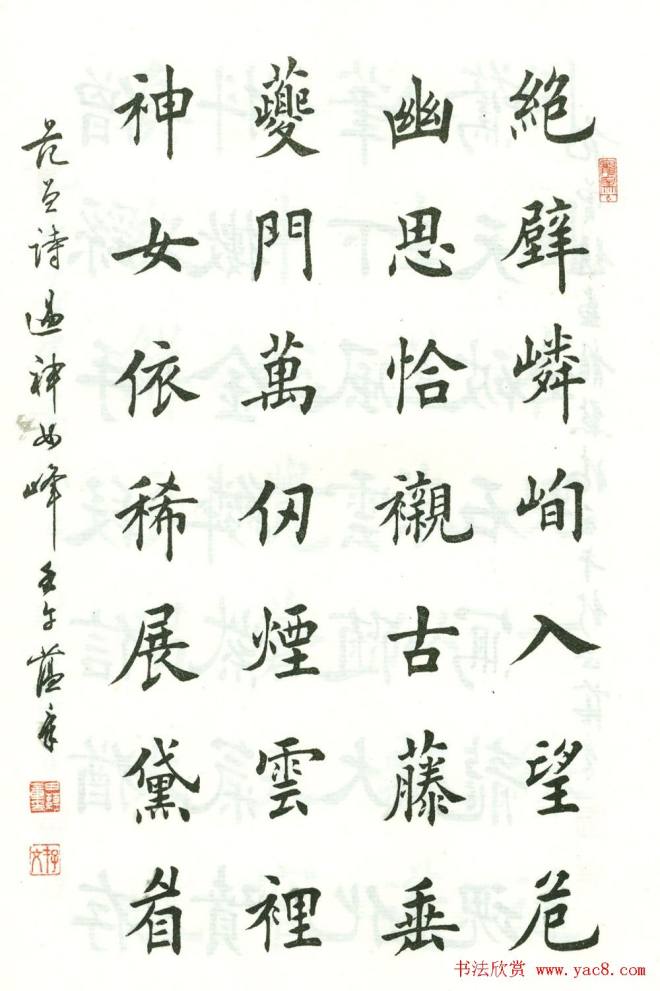 絶壁嶙峋入望危
幽思恰襯古藤垂
蘷門萬仞煙雲裡
神女依稀展黛眉
范曾詩過神女峰壬午蘊章
书法欣赏 www.yac8.com